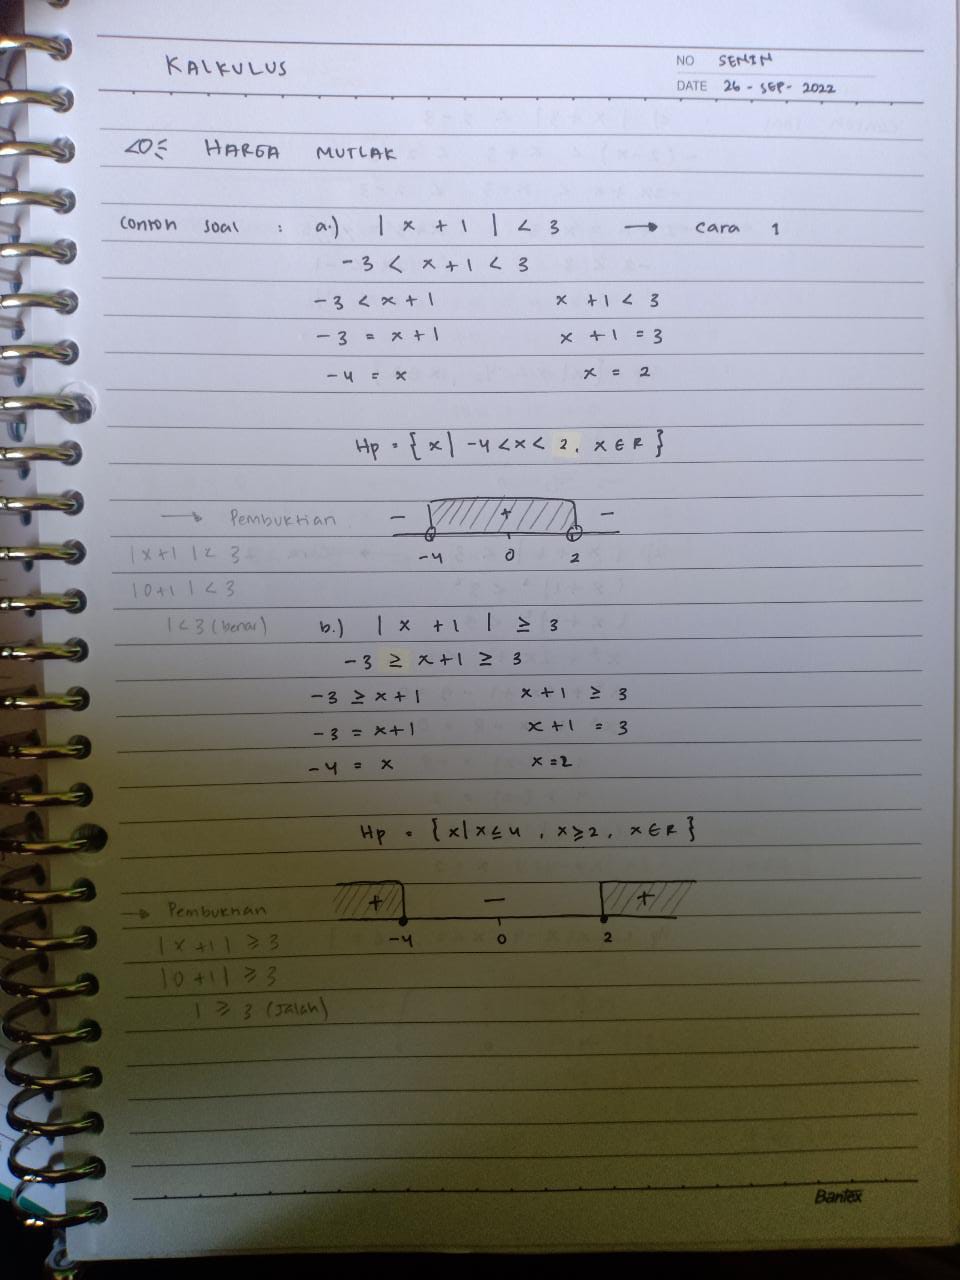 KALKULUS
NO SENIN
DATE 26 - SEP - 2022
HARGA MUTLAK
Contoh soal : a.) | x + 1 | < 3 → Cara 1
-3 < x + 1 < 3
-3 < x + 1 x + 1 < 3
-3 = x + 1 x + 1 = 3
-4 = x x = 2
Hp = { x | -4 < x < 2, x ∈ R }
→ Pembuktian - + -
-4 0 2
|x+1| < 3
|0+1| < 3
1 < 3 (benar) b.) | x + 1 | ≥ 3
-3 ≥ x+1 ≥ 3
-3 ≥ x+1 x+1 ≥ 3
-3 = x+1 x+1 = 3
-4 = x x = 2
Hp = { x | x ≤ 4, x ≥ 2, x ∈ R }
→ Pembuktian + - +
-4 0 2
|x+1| ≥ 3
|0+1| ≥ 3
1 ≥ 3 (salah)
Bantex